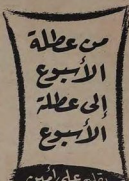 من عطلة
الأسبوع
إلى عطلة
الأسبوع
بقلم على أمين